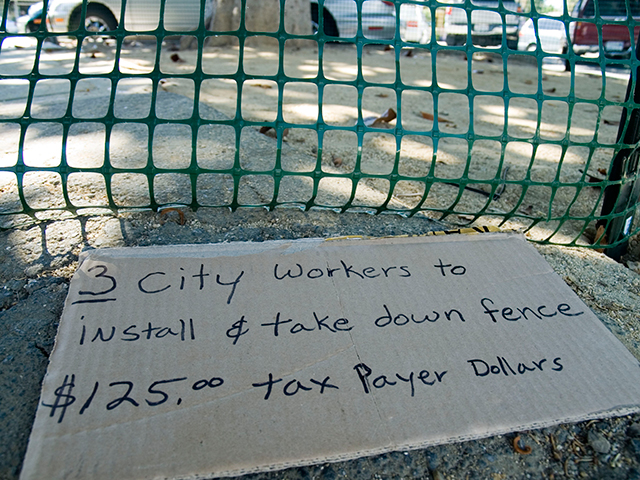 3 City Workers to
install & take down fence
$125.00 tax Payer Dollars